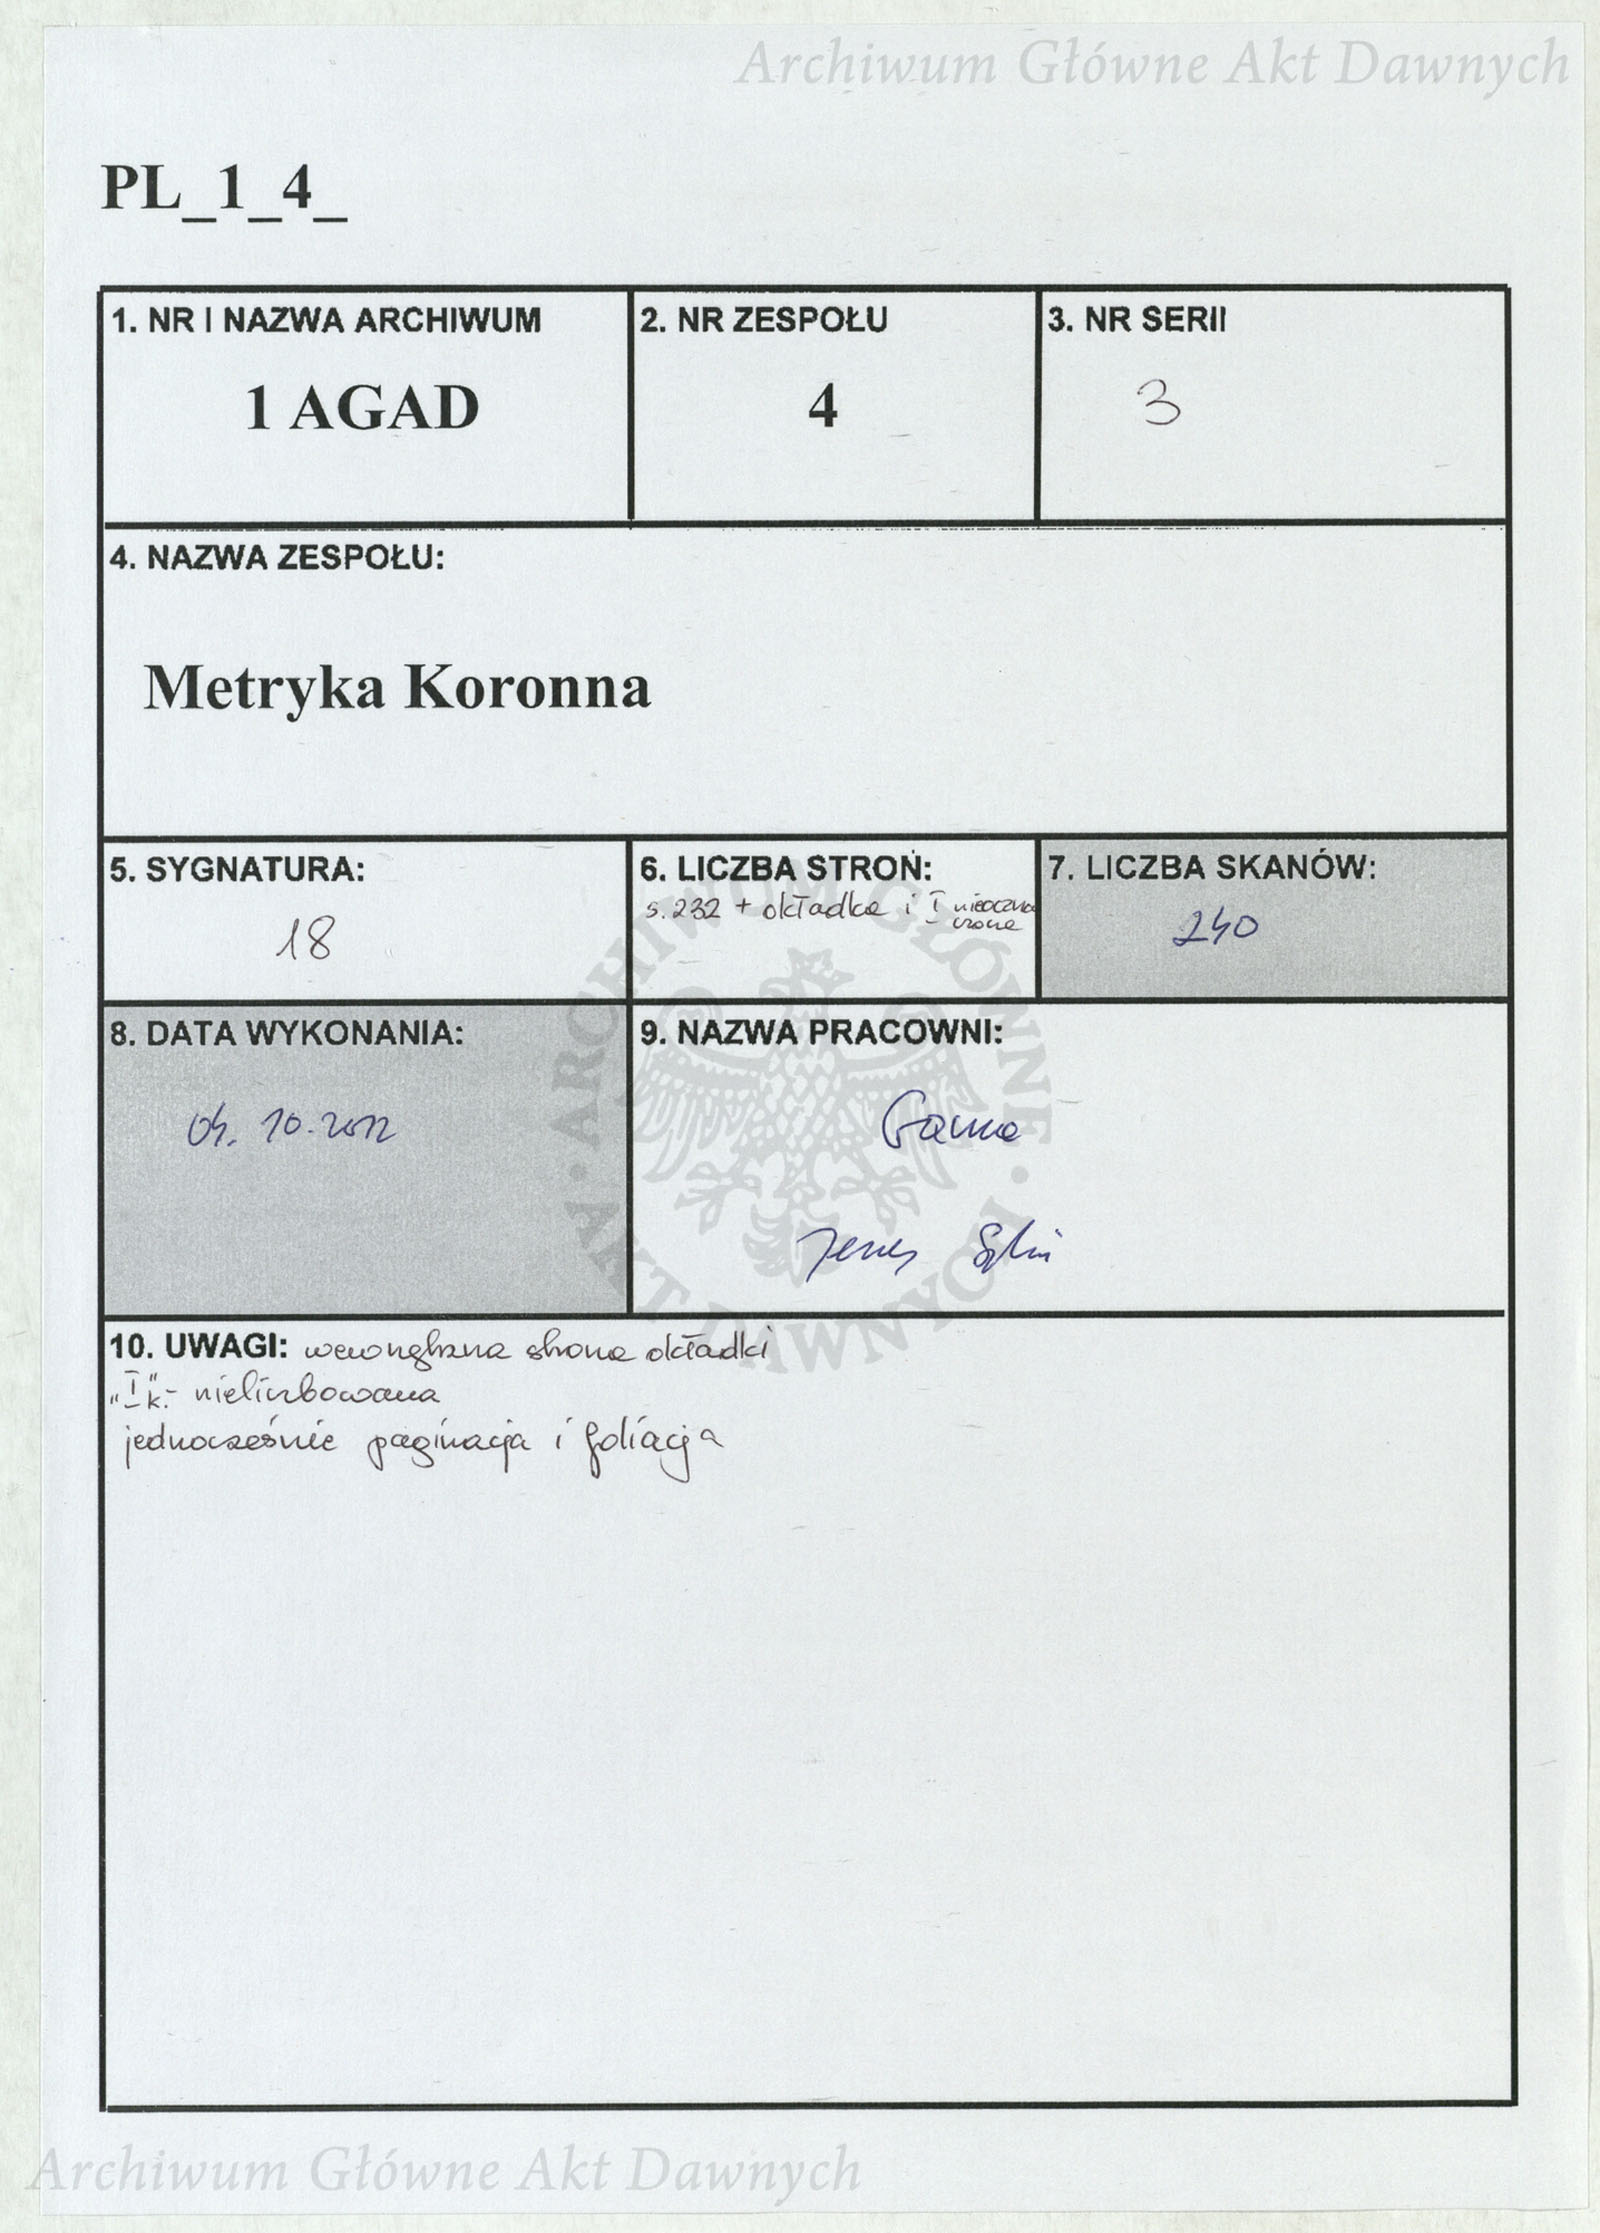 Archiwum Główne Akt Dawnych
PL_1_4_
1. NR I NAZWA ARCHIWUM
1 AGAD
2. NR ZESPOŁU
4
3. NR SERII
3
4. NAZWA ZESPOŁU:
Metryka Koronna
5. SYGNATURA:
18
6. LICZBA STRON:
s. 232 + okładka i I nieozna
czone
7. LICZBA SKANÓW:
240
8. DATA WYKONANIA:
04. 10. 2012
9. NAZWA PRACOWNI:
ARCHIWUM GŁÓWNE · AKT DAWNYCH ·
10. UWAGI: wewnętrzna strona okładki
„I" k. - nieliczbowana
jednocześnie paginacja i foliacja
Archiwum Główne Akt Dawnych